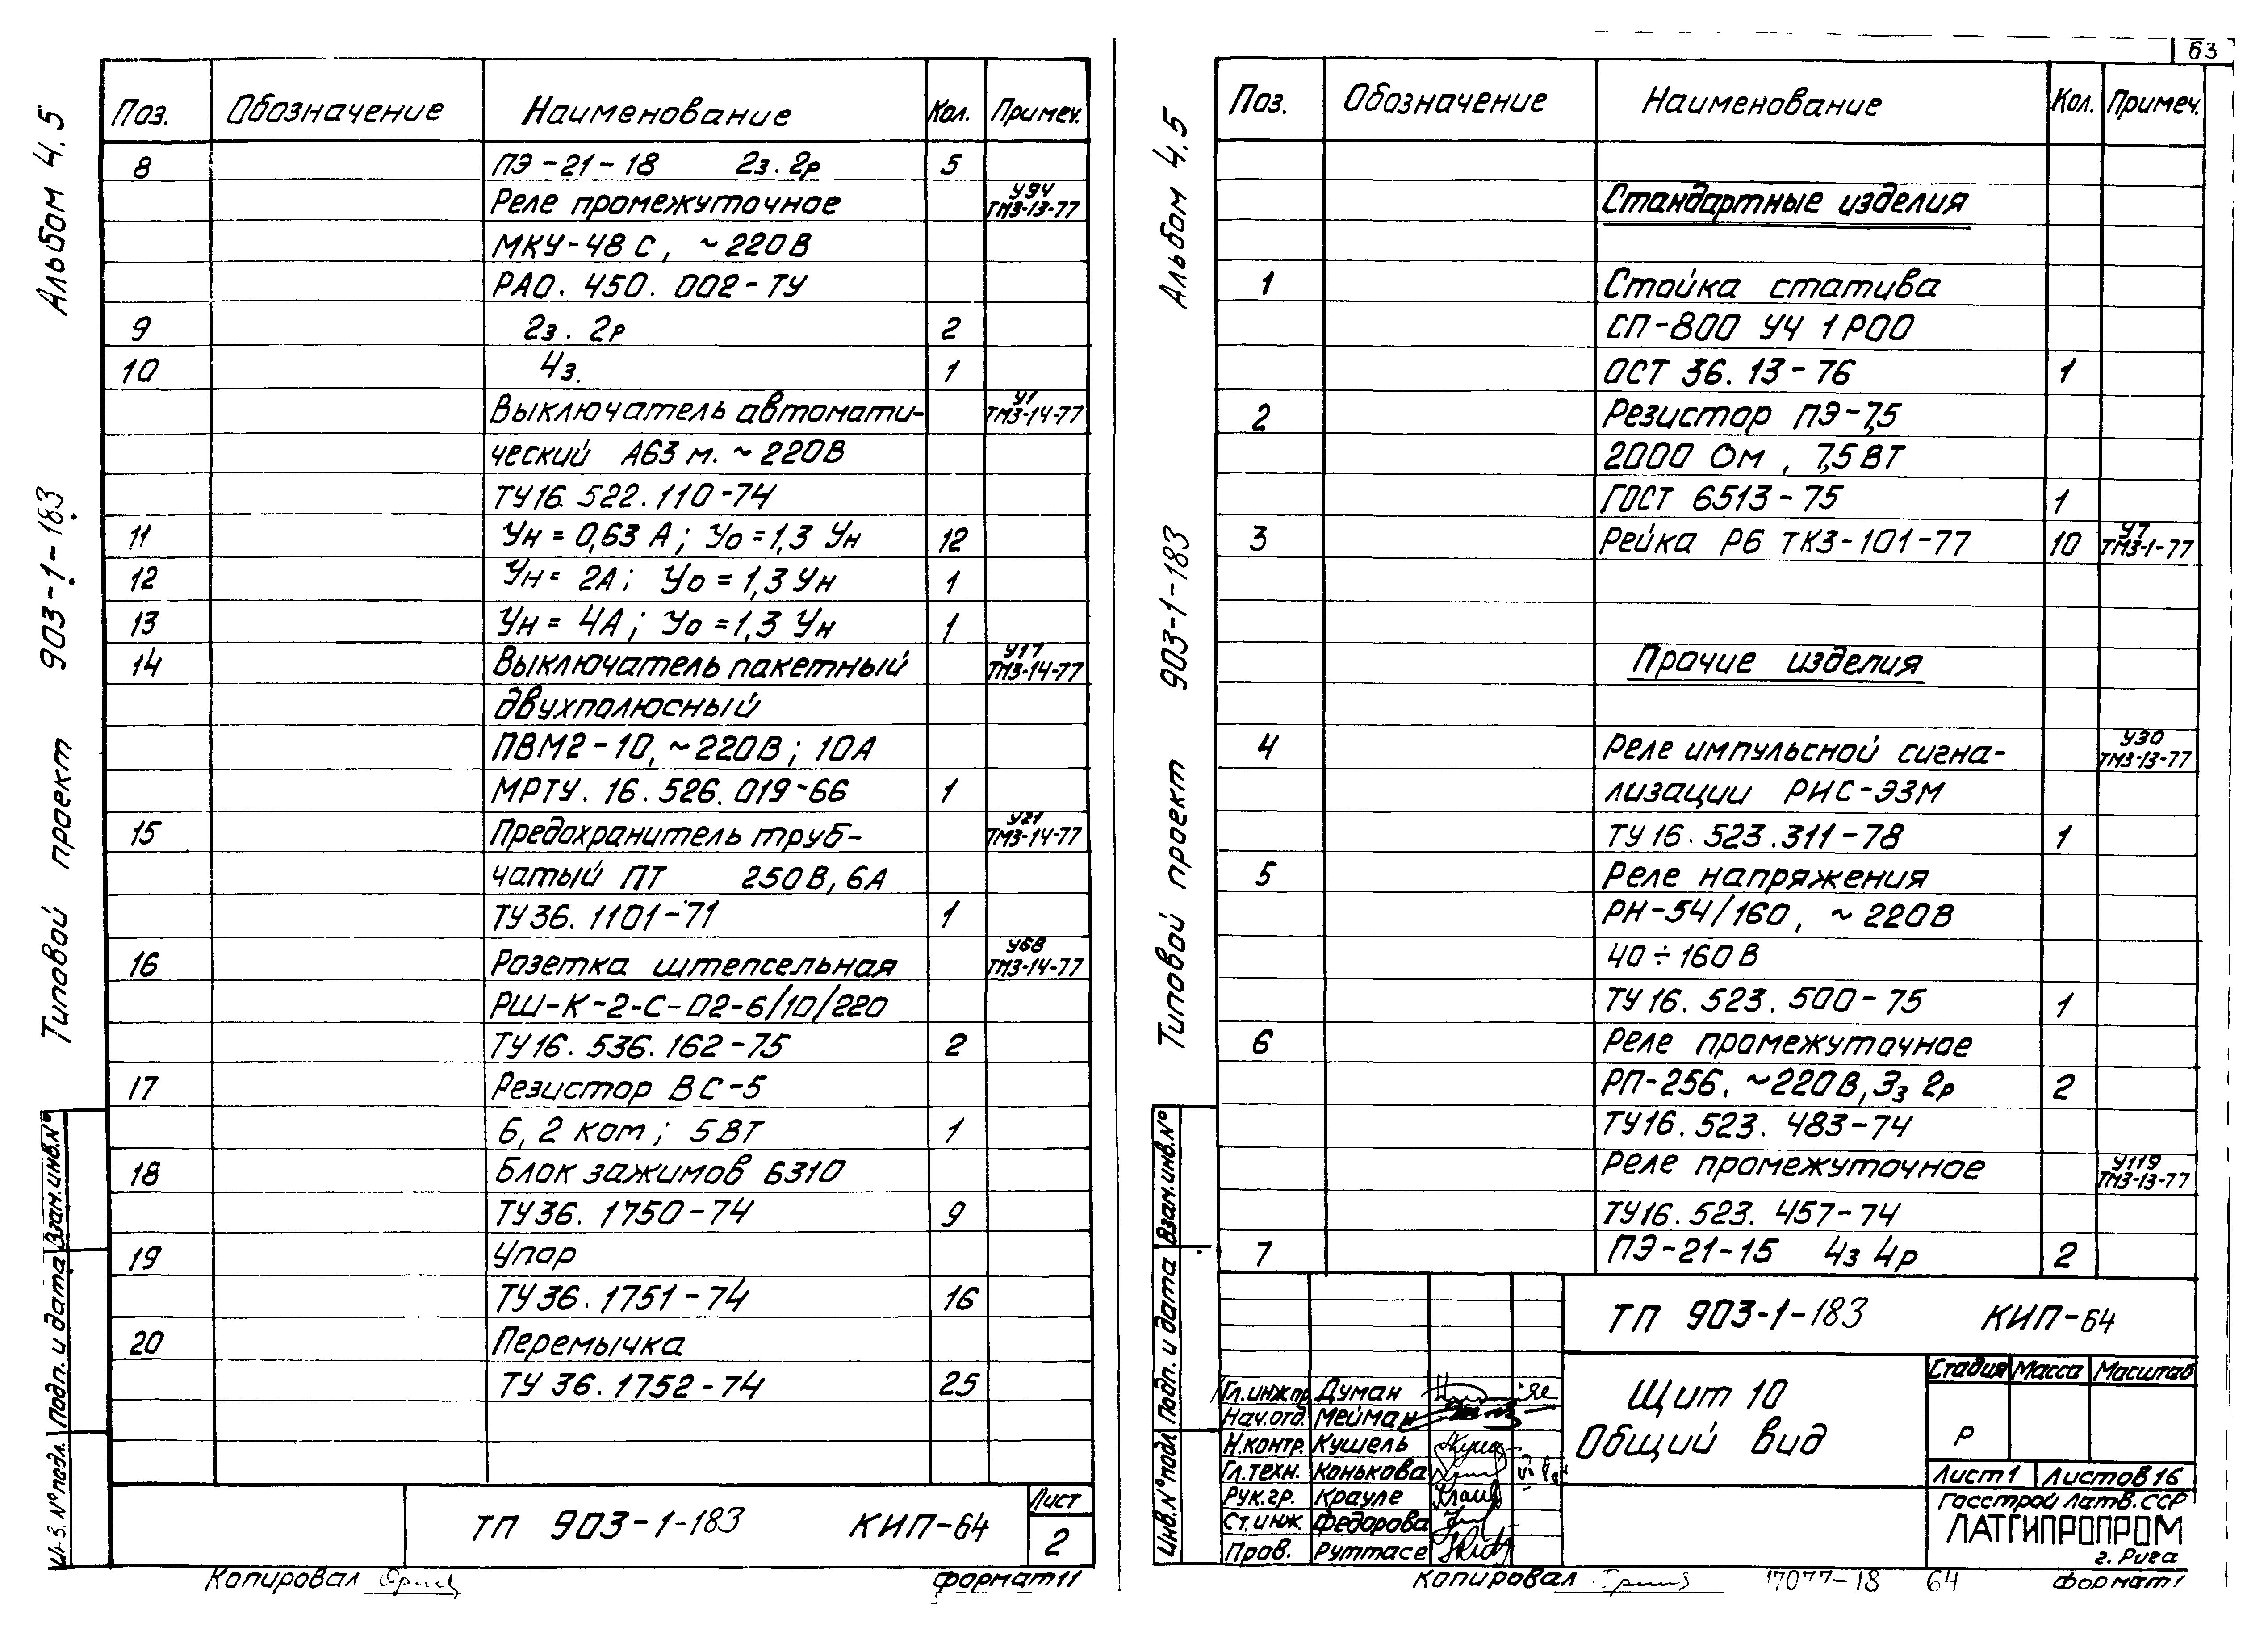 Альбом 4.5
Типовой проект 903-1-183
Поз. Обозначение Наименование Кол. Примеч.
8 ПЭ-21-18 2з. 2р 5
Реле промежуточное У94 ТМ3-13-77
МКУ-48 С, ~220В
РАО. 450. 002-ТУ
9 2з. 2р 2
10 4з. 1
Выключатель автомати- У1 ТМ3-14-77
ческий А63 м. ~220В
ТУ16. 522. 110-74
11 Ун = 0,63 А; Уо = 1,3 Ун 12
12 Ун = 2А; Уо = 1,3 Ун 1
13 Ун = 4А; Уо = 1,3 Ун 1
14 Выключатель пакетный У17 ТМ3-14-77
двухполюсный
ПВМ2-10, ~220В; 10А
МРТУ. 16. 526. 019-66 1
15 Предохранитель труб- У21 ТМ3-14-77
чатый ПТ 250В, 6А
ТУ36. 1101-71 1
16 Розетка штепсельная У68 ТМ3-14-77
РШ-К-2-С-02-6/10/220
ТУ16. 536. 162-75 2
17 Резистор ВС-5
6,2 ком; 5Вт 1
18 Блок зажимов Б310
ТУ36. 1750-74 9
19 Упор
ТУ36. 1751-74 16
20 Перемычка
ТУ 36. 1752-74 25
Взам.инв.№
Подп. и дата
Инв.№подл.
ТП 903-1-183 КИП-64
Лист
2
Копировал
формат11
63
Альбом 4.5
Типовой проект 903-1-183
Поз. Обозначение Наименование Кол. Примеч.
Стандартные изделия
1 Стойка статива
СП-800 У4 1Р00
ОСТ 36. 13-76 1
2 Резистор ПЭ-7,5
2000 Ом, 7,5Вт
ГОСТ 6513-75 1
3 Рейка Р6 ТК3-101-77 10 У7 ТМ3-1-77
Прочие изделия
4 Реле импульсной сигна- У30 ТМ3-13-77
лизации РИС-Э3М
ТУ16. 523. 311-78 1
5 Реле напряжения
РН-54/160, ~220В
40÷160В
ТУ16. 523. 500-75 1
6 Реле промежуточное
РП-256. ~220В, 3з 2р 2
ТУ16. 523. 483-74
Реле промежуточное У119 ТМ3-13-77
ТУ16. 523. 457-74
7 ПЭ-21-15 4з 4р 2
Взам.инв.№
Подп. и дата
Инв.№подл
ТП 903-1-183 КИП-64
Гл.инж.пр Думан
Нач.отд. Мейман
Н.контр. Кушель
Гл.техн. Конькова
Рук.гр. Крауле
Ст.инж. Федорова
Пров. Руттасе
Щит 10
Общий вид
Стадия Масса Масштаб
Р
Лист 1 Листов 16
Госстрой Латв.ССР
ЛАТГИПРОПРОМ
г. Рига
Копировал
17077-18 64
формат1